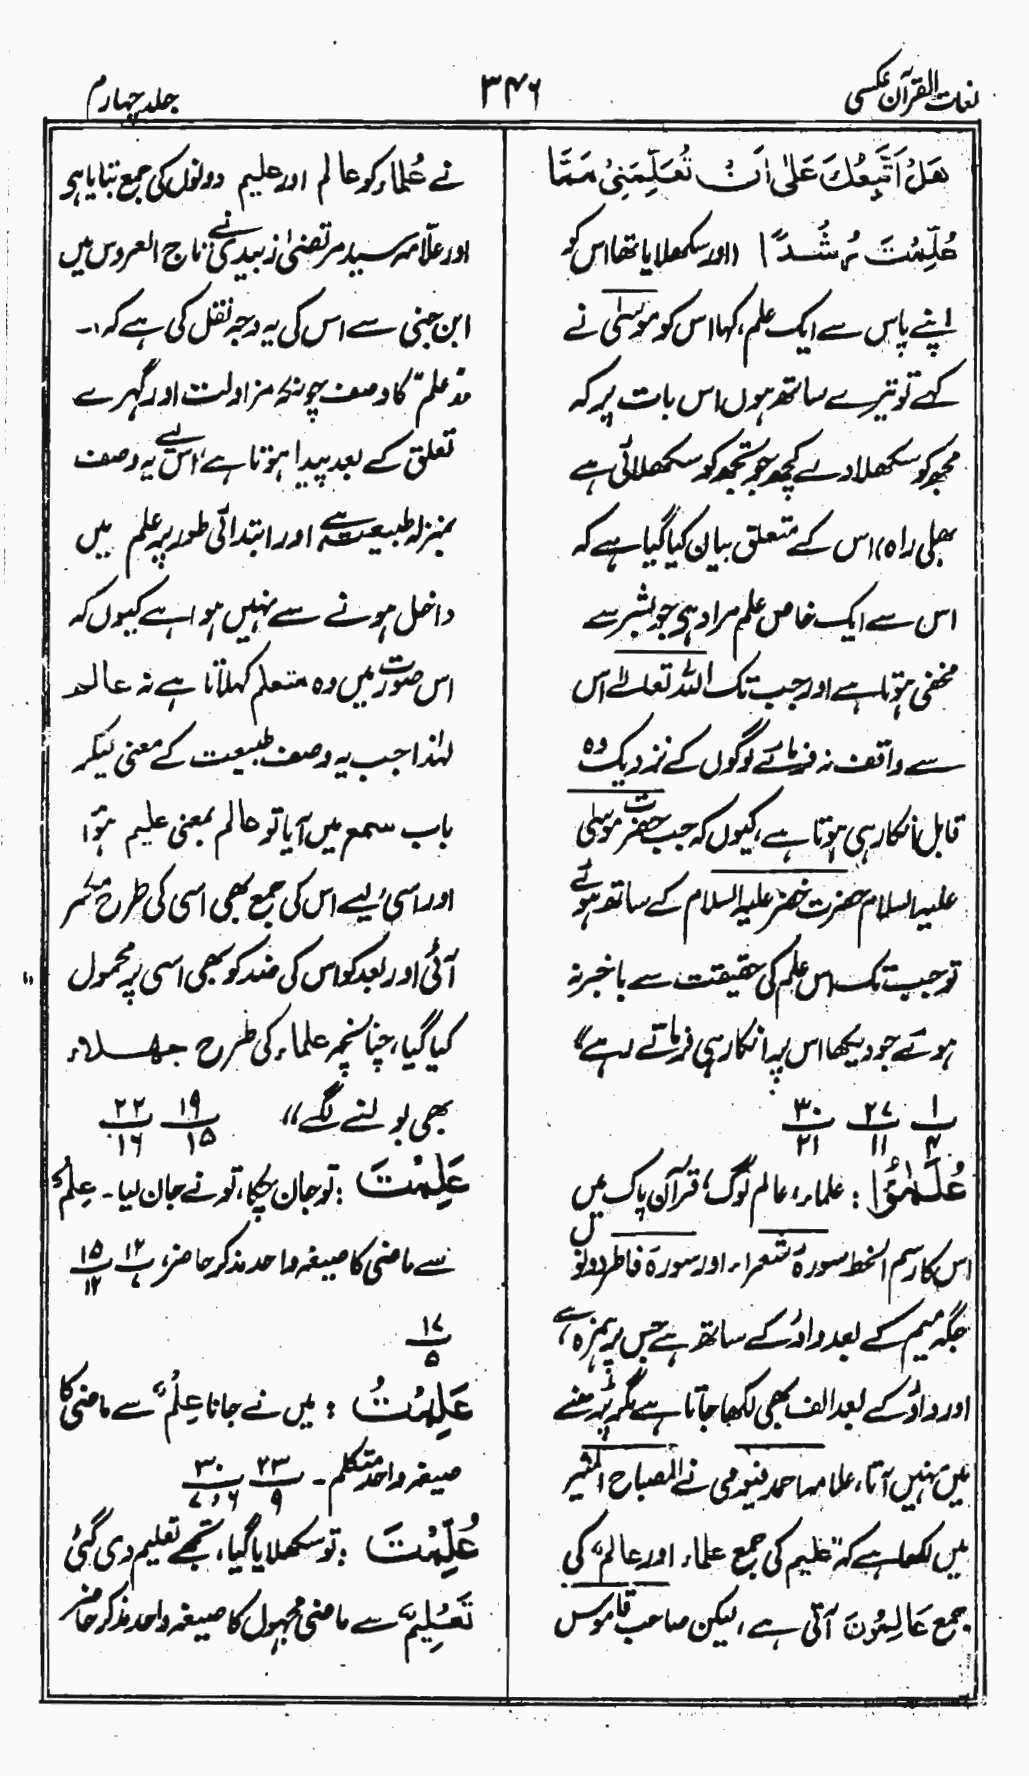 لغات القرآن عکسی
۳۴۶
جلد چہارم
هَلْ اَتَّبِعُكَ عَلٰى اَنْ تُعَلِّمَنِيْ مِمَّا
عُلِّمْتَ رُشْدًا (اور سکھلایا تھا اس کو
اپنے پاس سے ایک علم، کہا اس کو موسیٰ نے
کہے تو تیرے ساتھ ہوں اس بات پر کہ
مجھ کو سکھلا دے کچھ جو تجھ کو سکھلائی ہے
بھلی راہ) اس کے متعلق بیان کیا گیا ہے کہ
اس سے ایک خاص علم مراد ہی جو بشر سے
مخفی ہوتا ہے اور جب تک اللہ تعالےٰ اس
سے واقف نہ فرمائے لوگوں کے نزدیک وہ
قابل انکار ہی ہوتا ہے، کیوں کہ جب حضرت موسیٰ
علیہ السلام حضرت خضر علیہ السلام کے ساتھ ہوئے
تو جب تک اس علم کی حقیقت سے باخبر نہ
ہوئے جو دیکھا اس پر انکار ہی فرماتے رہے“
۱/۴ ۲۷/۱۱ ۳۰/۲۱
عُلَمٰٓؤُا : علماء، عالم لوگ، قرآن پاک میں
اس کا رسم الخط سورۃ شعراء اور سورۃ فاطر دونوں
جگہ میم کے بعد واؤ کے ساتھ ہے جس پر ہمزہ ہے
اور واؤ کے بعد الف بھی لکھا جاتا ہے مگر پڑھنے
میں نہیں آتا، علامہ احمد فیومی نے المصباح المنیر
میں لکھا ہے کہ ”علیم کی جمع علماء اور عالم“ کی
جمع عَالِمُوْنَ آتی ہے، لیکن صاحب قاموس
نے عُلماء کو عالم اور علیم دونوں کی جمع بتایا ہی
اور علّامہ سید مرتضیٰ زبیدی نے تاج العروس میں
ابن جنی سے اس کی یہ وجہ نقل کی ہے کہ:۔
”علم“ کا وصف چونکہ مزاولت اور گہرے
تعلق کے بعد پیدا ہوتا ہے، اس لیے یہ وصف
بمنزلہ طبیعت ہے اور ابتدائی طور پر علم میں
داخل ہونے سے نہیں ہوا ہے کیوں کہ
اس صورت میں وہ متعلم کہلاتا ہے نہ عالم
لہٰذا جب یہ وصف طبیعت کے معنی لیکر
باب سمع میں آیا تو عالم بمعنی علیم ہوا
اور اسی لیے اس کی جمع بھی اسی کی طرح مکسر
آئی اور بعد کو اس کی ضد کو بھی اسی پر محمول
کیا گیا، چنانچہ علماء کی طرح جہلاء
بھی بولنے لگے“ ۱۹/۱۵ ۲۲/۱۶
عَلِمْتَ : تو جان چکا، تو نے جان لیا۔ عِلْمٌ
سے ماضی کا صیغہ واحد مذکر حاضر، ۱۲/۷ ۱۵/۱۲
۱۷/۵
عَلِمْتُ : میں نے جانا عِلْمٌ سے ماضی کا
صیغہ واحد متکلم۔ ۲۳/۹ ۳۰/۷،۶
عُلِّمْتَ : تو سکھلایا گیا، تجھے تعلیم دی گئی
تَعْلِیْمٌ سے ماضی مجہول کا صیغہ واحد مذکر حاضر